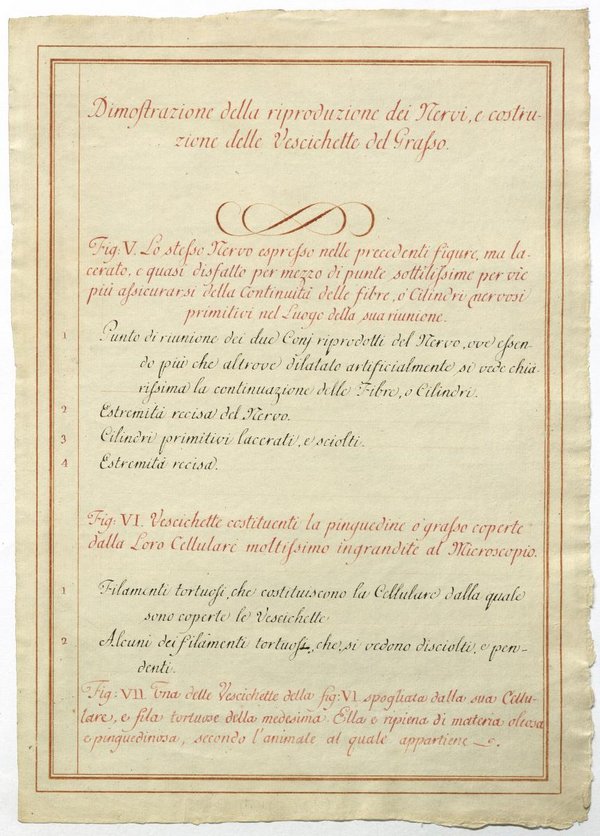 Dimoſtrazione della riproduzione dei Nervi, e costru-
zione delle Vescichette del Graſso.
Fig: V. Lo steſso Nervo espreſso nelle precedenti figure, ma la-
cerato, e quasi disfatto per mezzo di punte sottiliſsime per vie
più aſsicurarsi della Continuità delle fibre, o' Cilindri nervosi
primitivi nel Luogo della sua riunione.
1 Punto di riunione dei due Conj riprodotti del Nervo, ove eſsen-
do più che altrove dilatato artificialmente si vede chia-
riſsima la continuazione delle Fibre, o Cilindri.
2 Estremità recisa del Nervo.
3 Cilindri primitivi lacerati, e sciolti.
4 Estremità recisa.
Fig: VI. Vescichette costituenti la pinguedine o' graſso coperte
dalla Loro Cellulare moltiſsimo ingrandite al Microscopio.
1 Filamenti tortuoſi, che costituiscono la Cellulare dalla quale
sono coperte le Vescichette
2 Alcuni dei filamenti tortuoſi, che, si vedono disciolti, e pen-
denti.
Fig: VII. Una delle Vescichette della fig: VI spogliata dalla sua Cellu-
lare, e fila tortuose della medesima. Ella e ripiena di materia oleosa
e pinguedinosa, secondo l'animale al quale appartiene